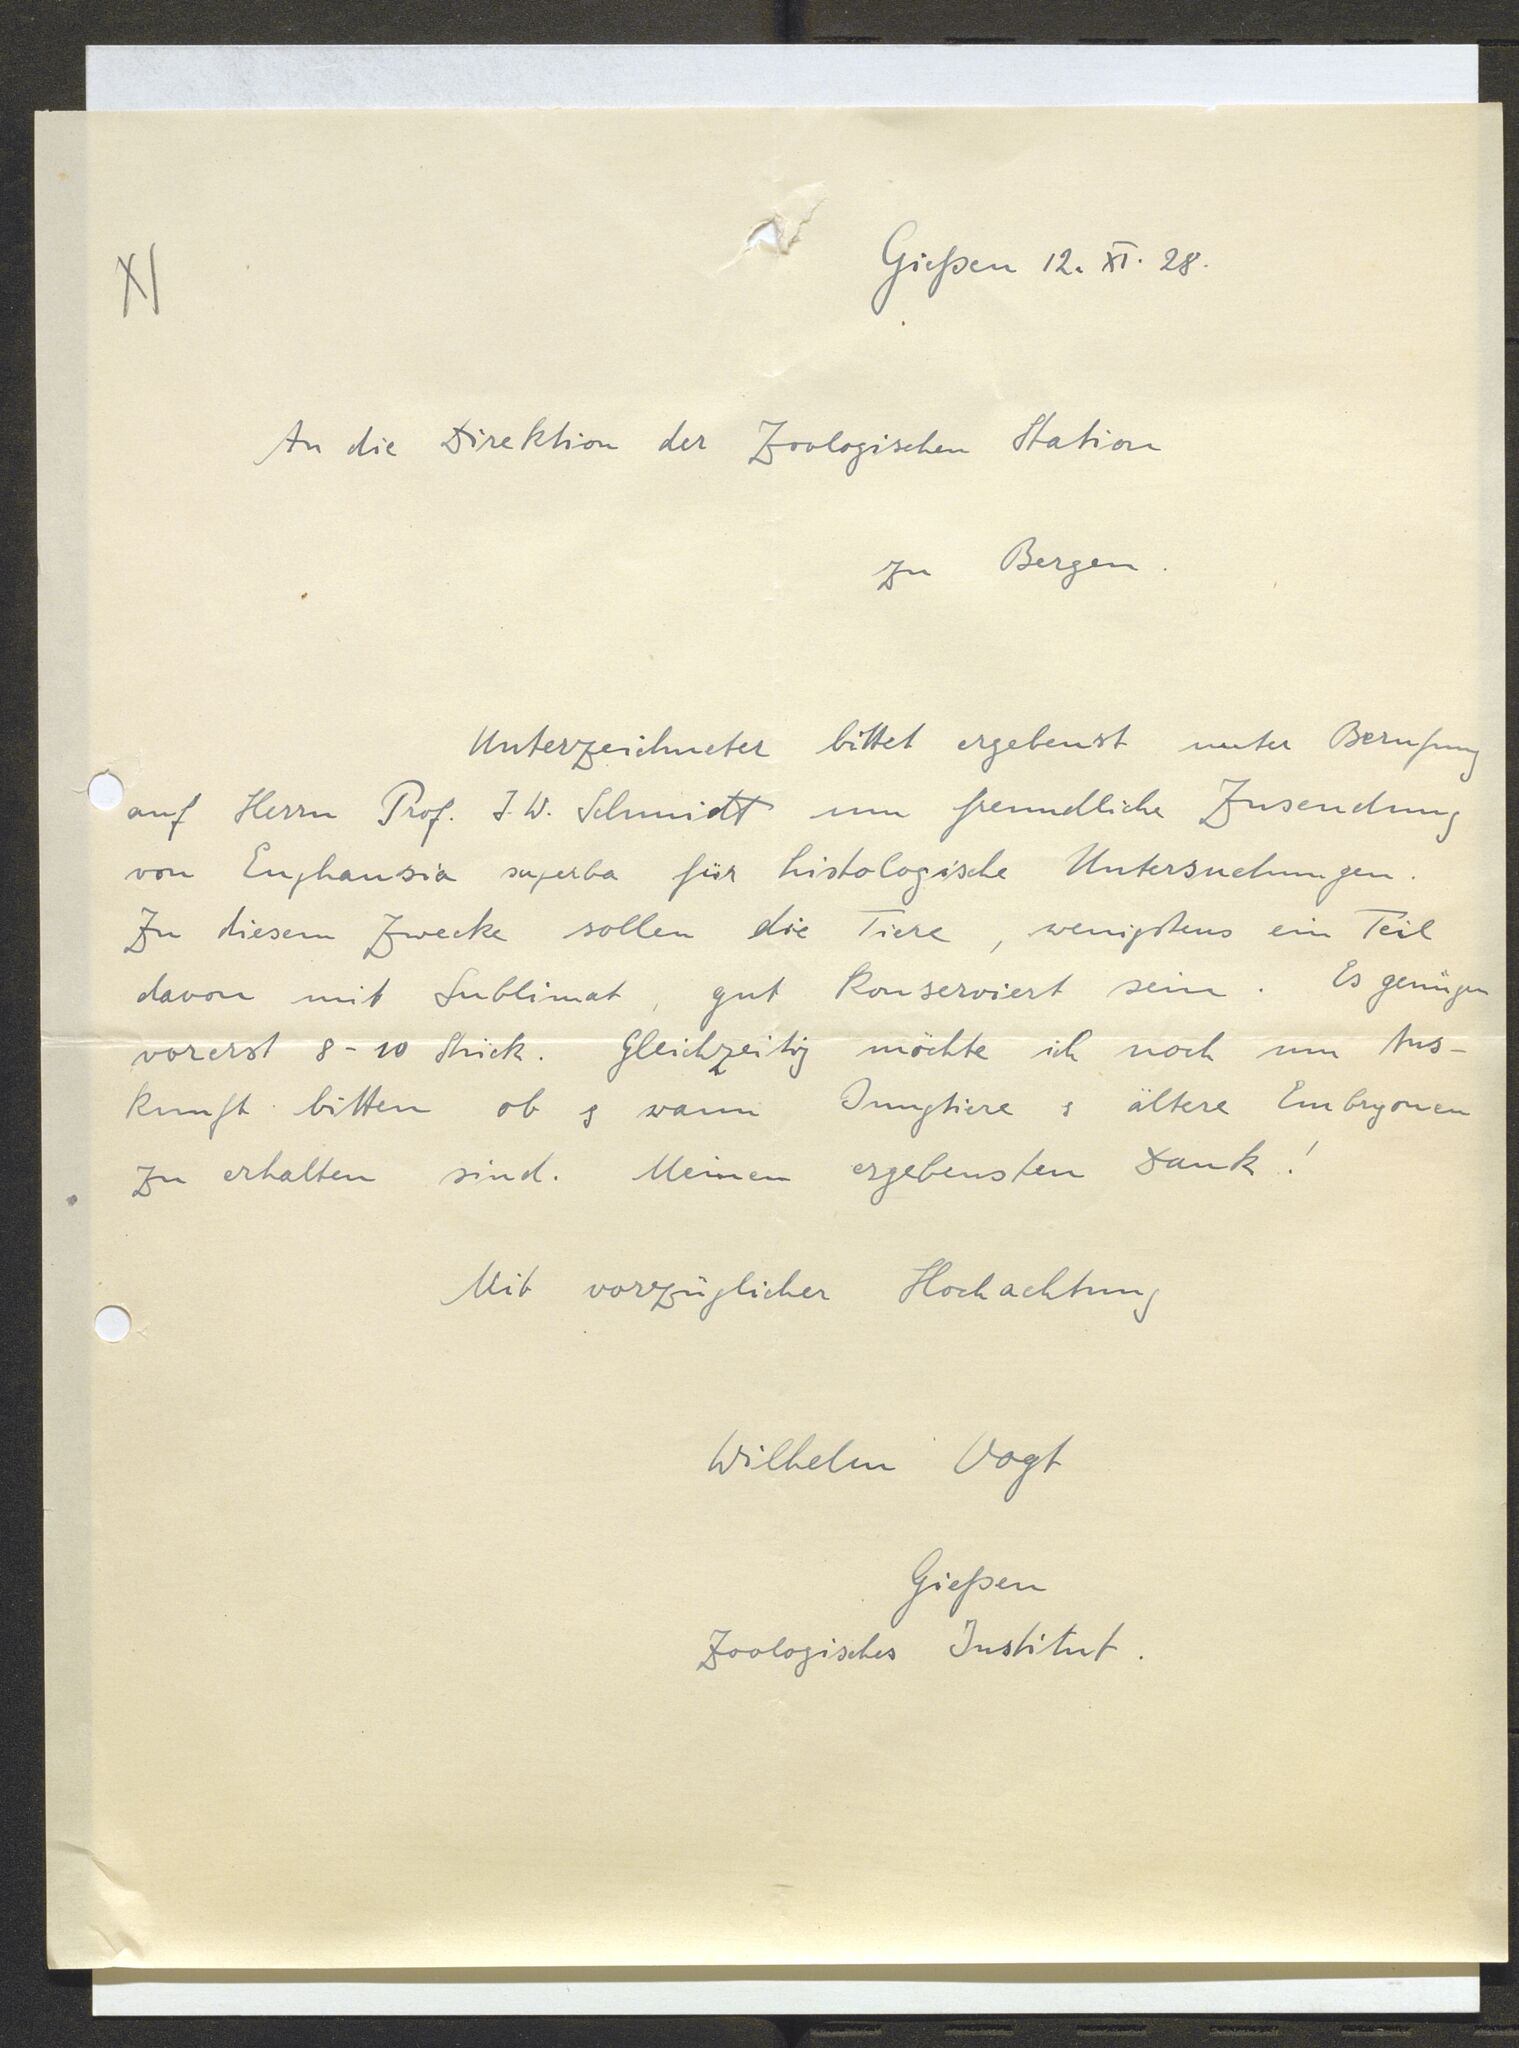 XI
Gießen 12. XI. 28.
An die Direktion der Zoologischen Station
zu Bergen.
Unterzeichneter bittet ergebenst unter Berufung
auf Herrn Prof. J. W. Schmidt um freundliche Zusendung
von Euphausia superba für histologische Untersuchungen.
Zu diesem Zwecke sollen die Tiere, wenigstens ein Teil
davon mit Sublimat, gut konserviert sein. Es genügen
vorerst 8-10 Stück. Gleichzeitig möchte ich noch um Aus-
kunft bitten ob & wann Jungtiere & ältere Embryonen
zu erhalten sind. Meinen ergebensten Dank!
Mit vorzüglicher Hochachtung
Wilhelm Vogt
Gießen
Zoologisches Institut.